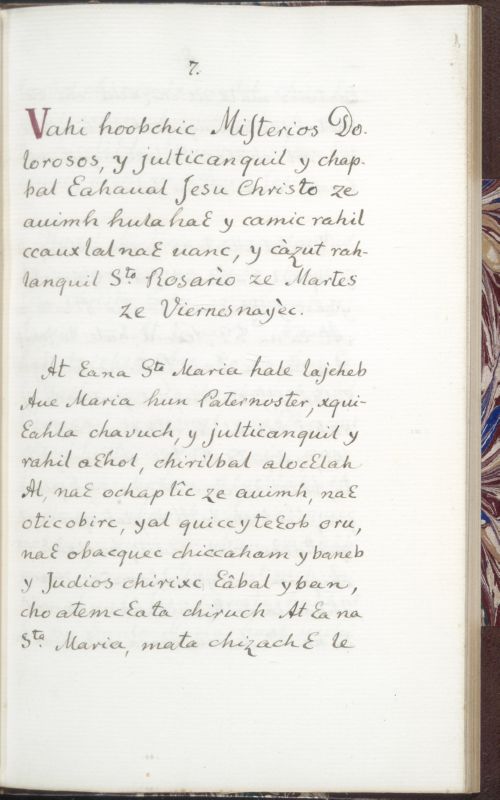 7.
Vahi hoobchic Miſterios Do-
lorosos, y julticanquil y chap-
bal Eahaual Jesu Christo ze
auimh hulahaE y camic rahil
ccauxlalnaE uanc, y càzut rah-
lanquil Sto Rosario ze Martes
ze Viernesnayèc.
At Eana Sta Maria hale lajeheb
Aue Maria hun Paternoster, xqui-
Eahla chavuch, y julticanquil y
rahil aEhol, chirilbal alocElah
Al, naE ochaplîc ze auimh, naE
oticobirc, yal quiccyteEob oru,
naE obacquec chiccaham ybaneb
y Judios chirixc Eâbal yban,
cho atemcEata chiruch At Eana
Sta Maria, mata chizachE le